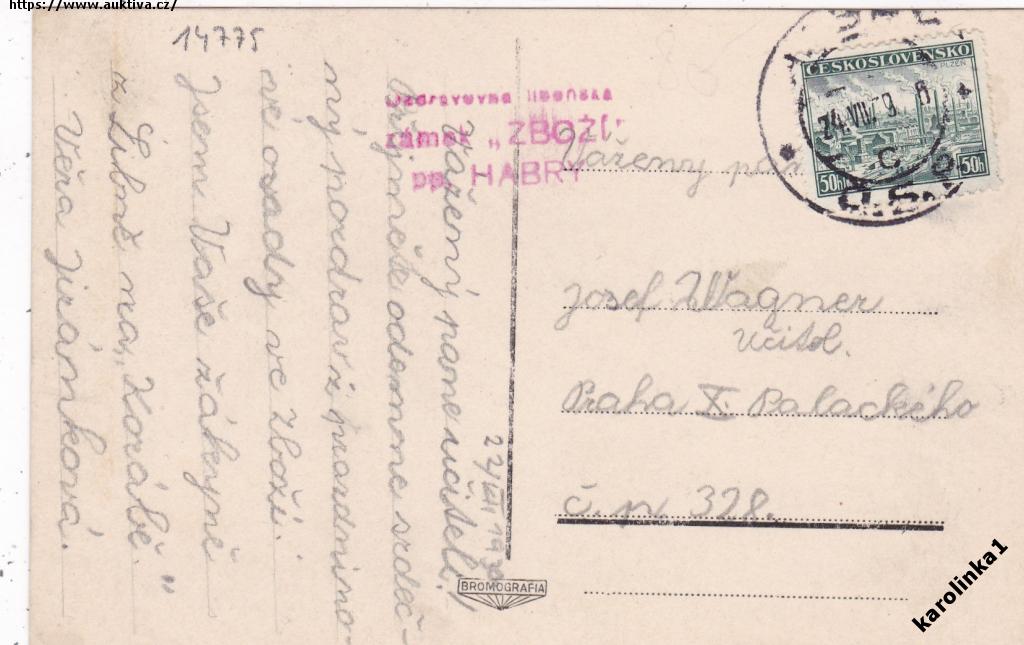 https://www.auktiva.cz/
14775
Ozdravovna libeňská
zámek „ZBOŽÍ"
pp. HABRY
Vážený pane učiteli!
Přijměte odemne srdeč-
ný pozdrav z prázdnino-
vé osady ve Zboží.
Jsem Vaše žákyně
z Libně na „Korábě"
Věra Jiránková.
22/VIII 19
BROMOGRAFIA
ČESKOSLOVENSKO
PLZEŇ
50h
50h
24.VIII.39
C
Vážený pán
Josef Wagner
učitel.
Praha X. Palackého
č. p. 328.
karolinka1